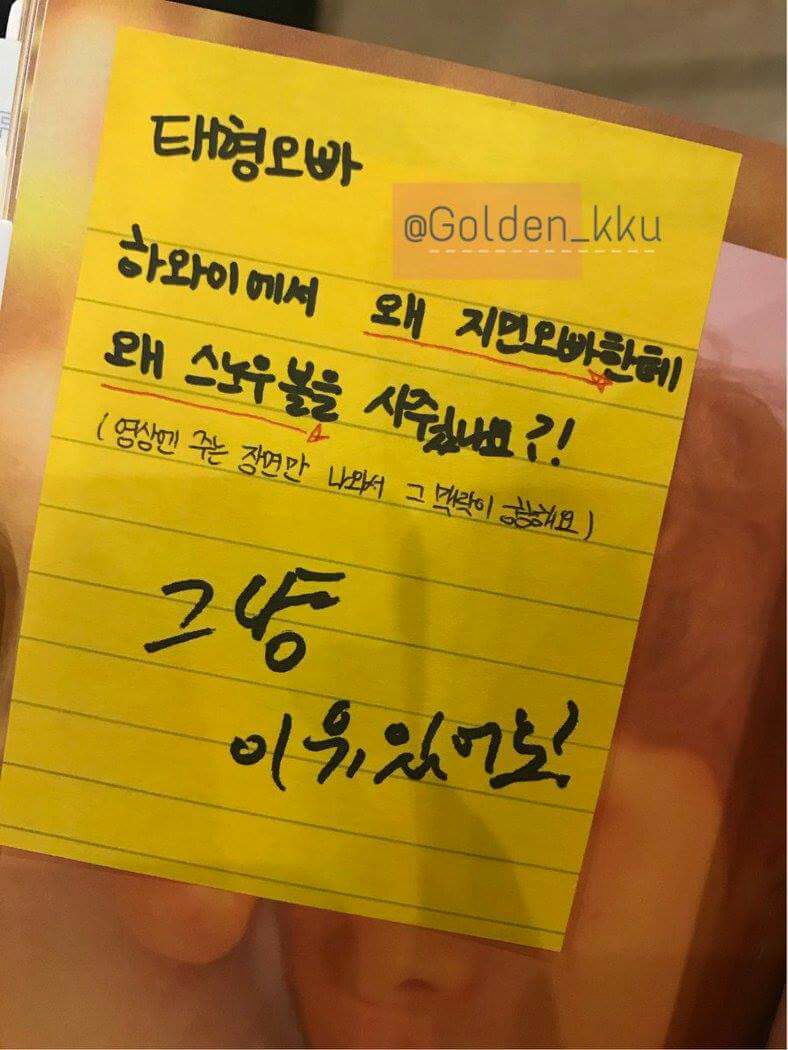 태형오빠
@Golden_kku
하와이에서 왜 지민오빠한테
왜 스노우볼을 사주셨나요?!
(영상엔 주는 장면만 나와서 그 맥락이 궁금해요)
그냥
이유 있어요!